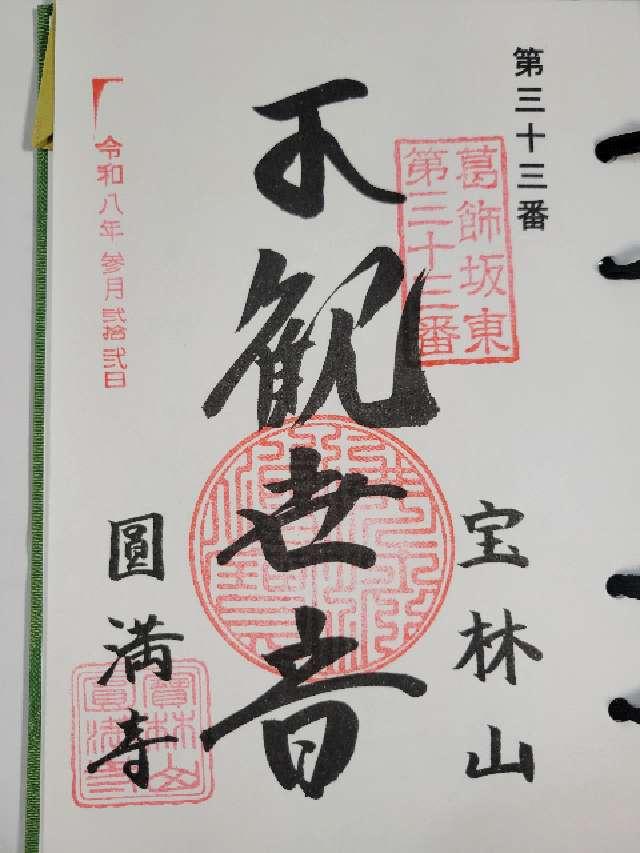 第三十三番
葛飾坂東
第三十三番
宝林山
観世音
圓満寺
寶林山
圓満寺
令和八年参月弐拾弐日